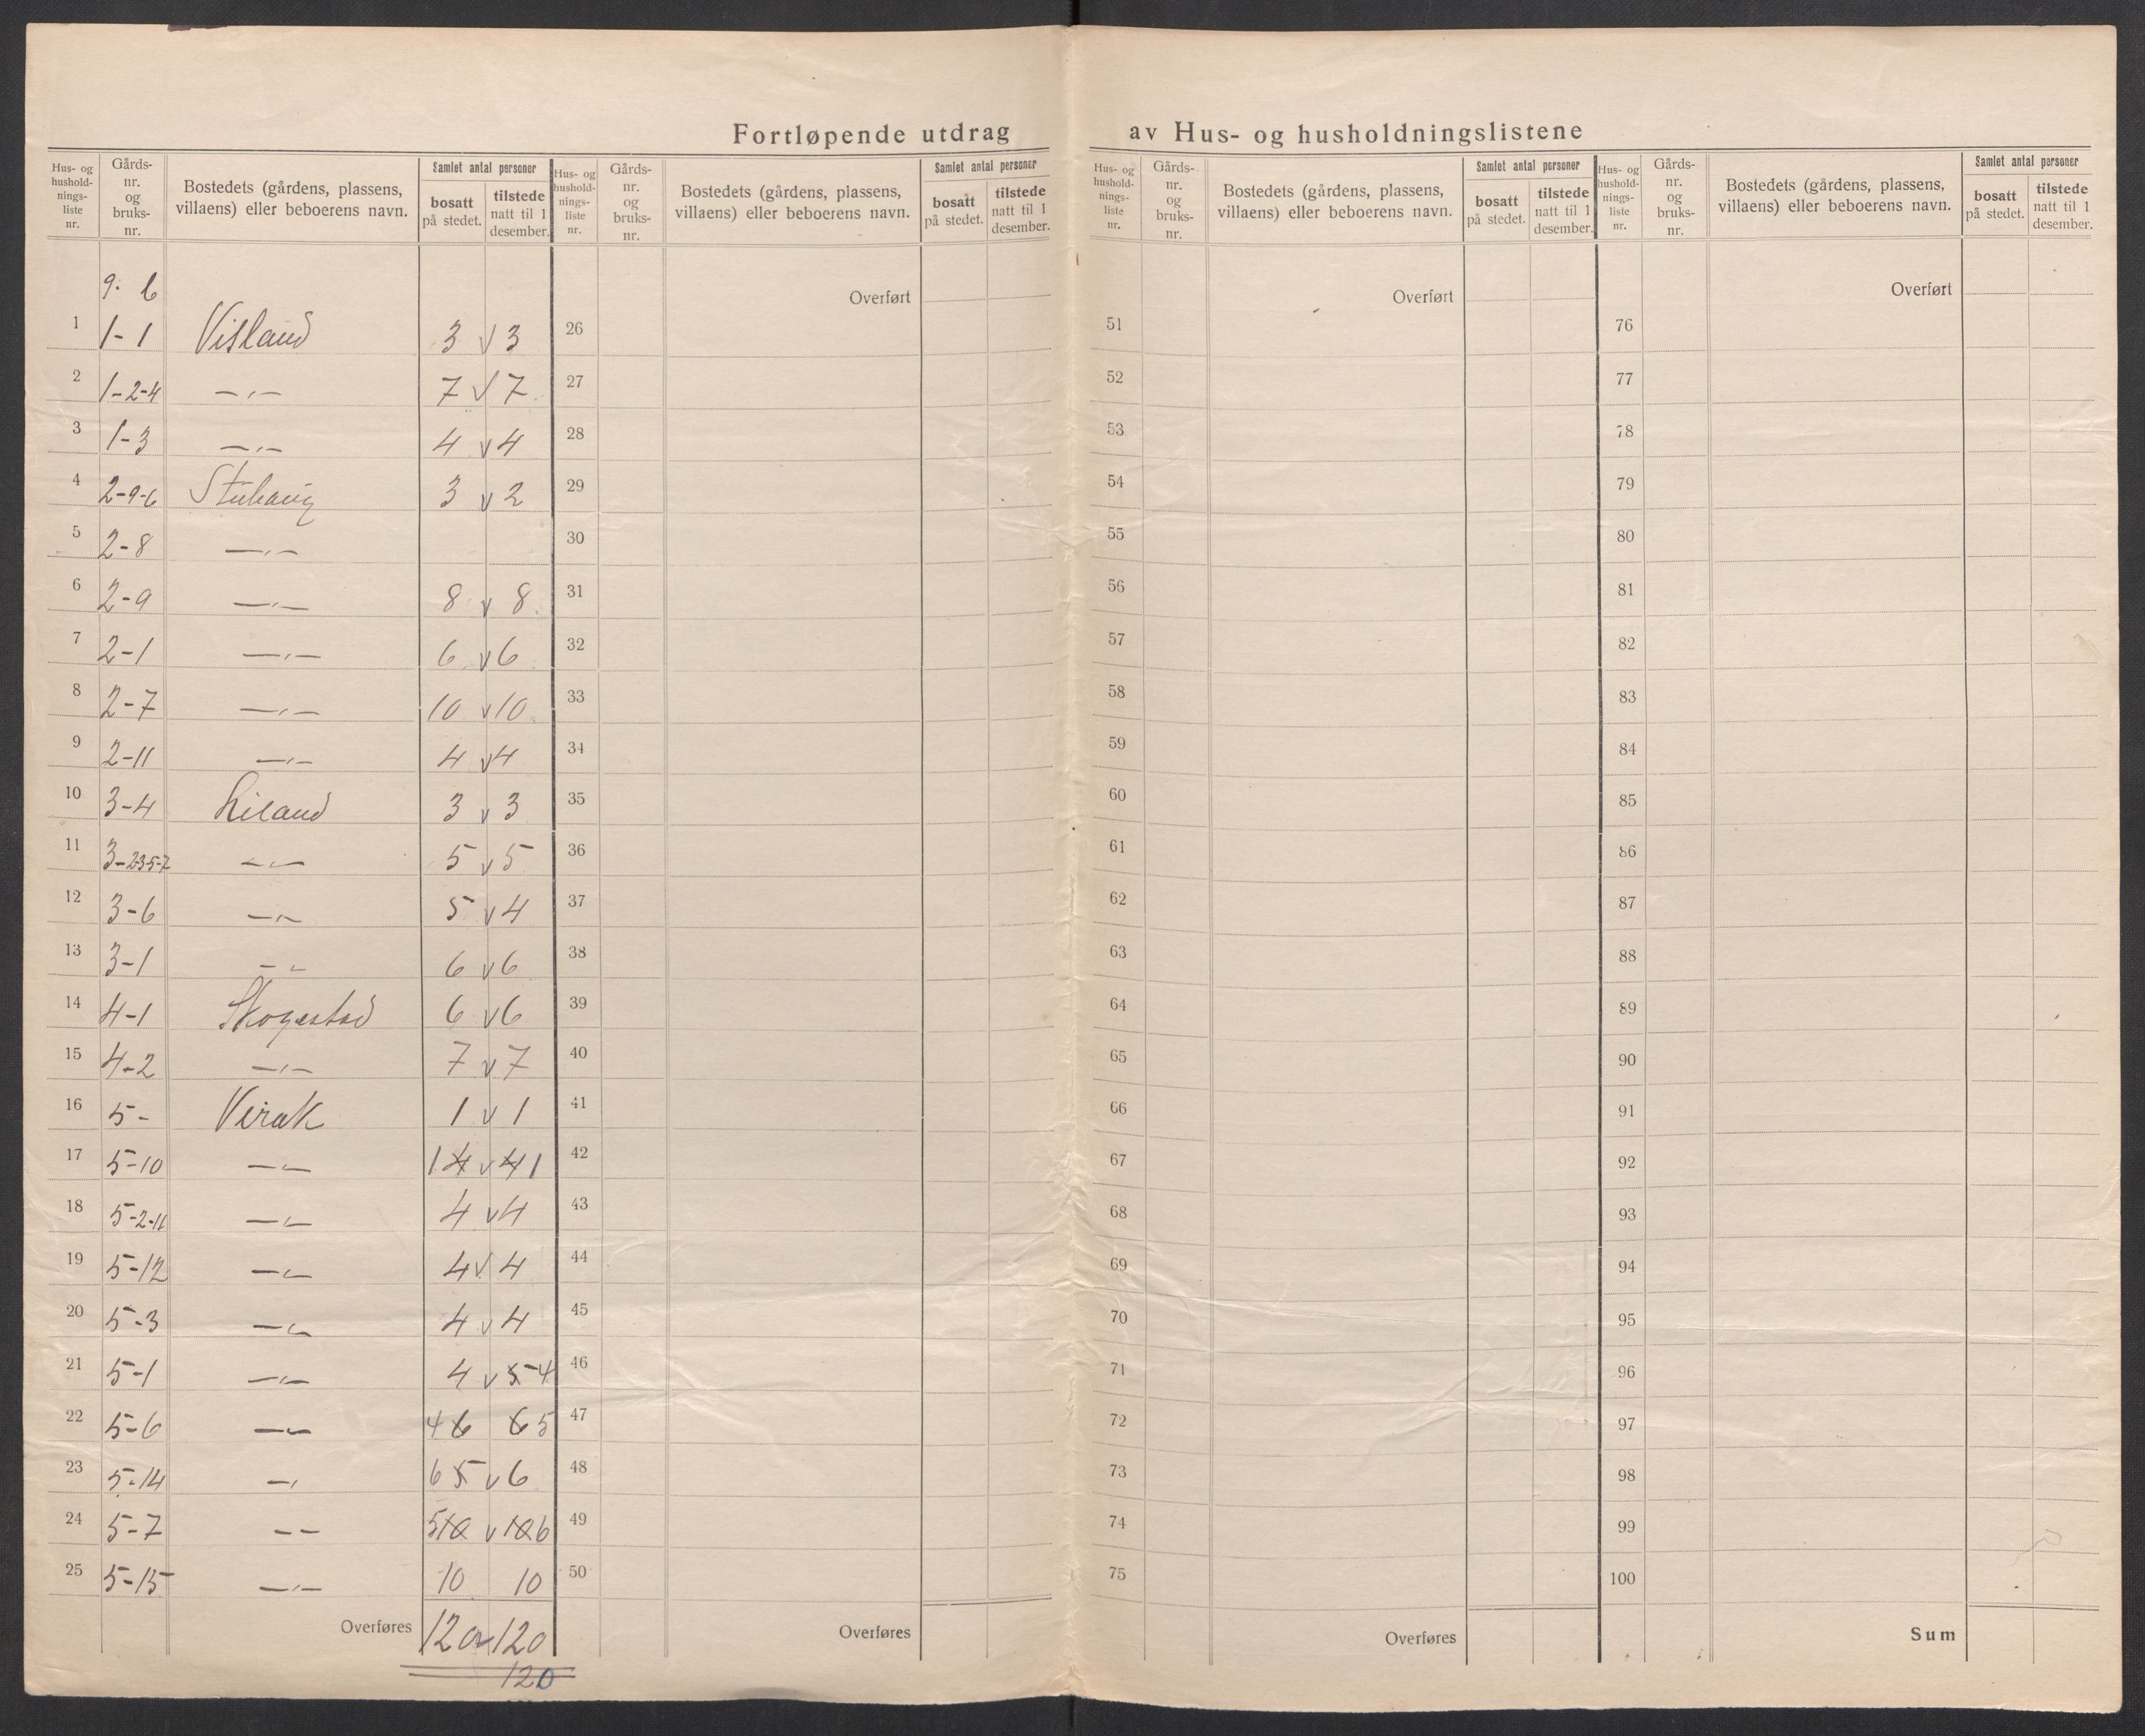 Fortløpende utdrag av Hus- og husholdningslistene
Hus- og husholdnings-liste nr. Gårds-nr. og bruks-nr. Bostedets (gårdens, plassens, villaens) eller beboerens navn. Samlet antal personer bosatt på stedet. tilstede natt til 1 desember.
Hus- og husholdnings-liste nr. Gårds-nr. og bruks-nr. Bostedets (gårdens, plassens, villaens) eller beboerens navn. Samlet antal personer bosatt på stedet. tilstede natt til 1 desember.
Hus- og husholdnings-liste nr. Gårds-nr. og bruks-nr. Bostedets (gårdens, plassens, villaens) eller beboerens navn. Samlet antal personer bosatt på stedet. tilstede natt til 1 desember.
Hus- og husholdnings-liste nr. Gårds-nr. og bruks-nr. Bostedets (gårdens, plassens, villaens) eller beboerens navn. Samlet antal personer bosatt på stedet. tilstede natt til 1 desember.
g. b Overført Overført Overført
1 1-1 Visland 3 v 3 26 51 76
2 1-2-4 —,,— 7 v 7 27 52 77
3 1-3 —,,— 4 v 4 28 53 78
4 2-9-6 Stuhaug 3 v 2 29 54 79
5 2-8 —,,— 30 55 80
6 2-9 —,,— 8 v 8 31 56 81
7 2-1 —,,— 6 v 6 32 57 82
8 2-7 —,,— 10 v 10 33 58 83
9 2-11 —,,— 4 v 4 34 59 84
10 3-4 Liland 3 v 3 35 60 85
11 3-2-3-5-7 —,,— 5 v 5 36 61 86
12 3-6 —,,— 5 v 4 37 62 87
13 3-1 —,,— 6 v 6 38 63 88
14 4-1 Skogestad 6 v 6 39 64 89
15 4-2 —,,— 7 v 7 40 65 90
16 5- Virak 1 v 1 41 66 91
17 5-10 —,,— 1 4 v 4 1 42 67 92
18 5-2-11 —,,— 4 v 4 43 68 93
19 5-12 —,,— 4 v 4 44 69 94
20 5-3 —,,— 4 v 4 45 70 95
21 5-1 —,,— 4 v 5 4 46 71 96
22 5-6 —,,— 4 6 6 5 47 72 97
23 5-14 —,, 6 5 v 6 48 73 98
24 5-7 — — 5 10 v 10 6 49 74 99
25 5-15 —,,— 10 10 50 75 100
Overføres 120 v 120 Overføres Overføres Sum
120